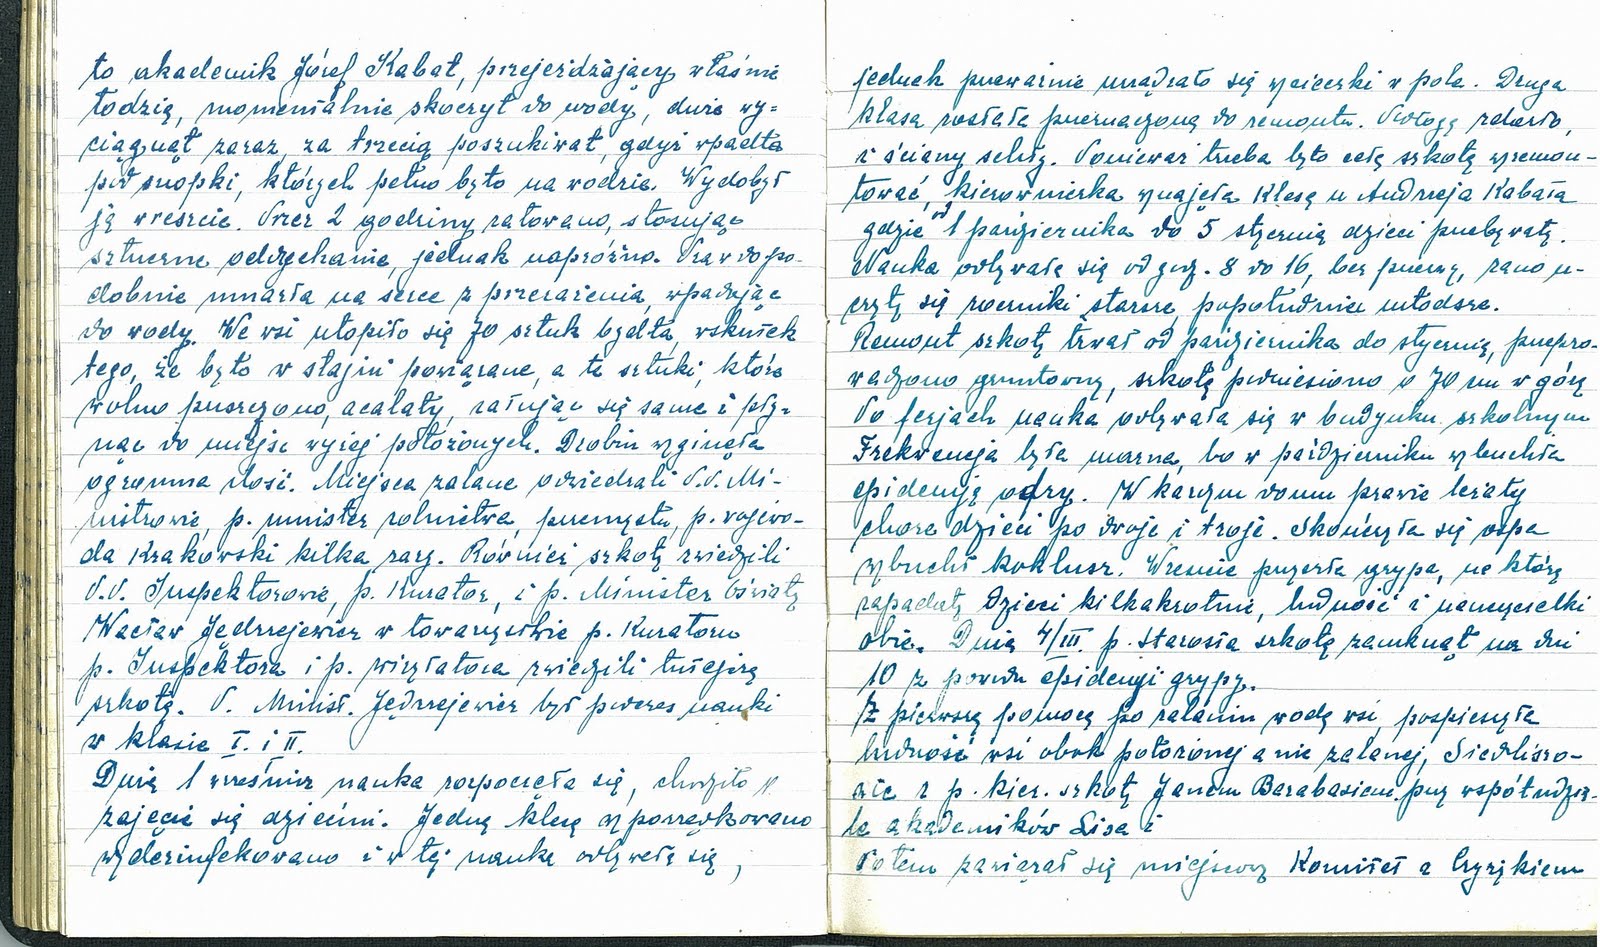 to akademik Józef Kabat, przejeżdżający właśnie
łodzią, momentalnie skoczył do wody, dwie wy=
ciągnął zaraz, za trzecią poszukiwał, gdyż wpadła
pod snopki, których pełno było na wodzie. Wydobył
ją wreszcie. Przez 2 godziny ratowano, stosując
sztuczne oddychanie, jednak napróżno. Prawdopo-
dobnie umarła na serce z przerażenia, wpadając
do wody. We wsi utopiło się 70 sztuk bydła, wskutek
tego, że było w stajni powiązane, a te sztuki, które
wolno puszczono, ocalały, ratując się same i pły-
nąc do miejsc wyżej położonych. Drobiu wyginęła
ogromna ilość. Miejsca zalane odwiedzali P.P. Mi-
nistrowie, p. minister rolnictwa, przemysłu, p. wojewo-
da Krakowski kilka razy. Również szkołę zwiedzili
P.P. Inspektorowie, p. Kurator, i p. Minister Oświaty
Wacław Jędrzejewicz w towarzystwie p. Kuratora
p. Inspektora i p. wizytatora zwiedzili tutejszą
szkołę. P. Minist. Jędrzejewicz był podczas nauki
w klasie I. i II.
Dnia 1 września nauka rozpoczęła się, chodziło o
zajęcie się dziećmi. Jedną klasę wyporządkowano
wydezinfekowano i w tej nauka odbywała się,
jednak przeważnie urządzało się wycieczki w pole. Druga
klasa została przeznaczoną do remontu. Podłogę zdarto,
i ściany schły. Ponieważ trzeba było całą szkołę wyremon-
tować, kierowniczka wynajęła klasę u Andrzeja Kabata
gdzie od 1 października do 5 stycznia dzieci przebywały.
Nauka odbywała się od godz. 8 do 16, bez przerwy, rano u-
czyły się roczniki starsze, popołudniu młodsze.
Remont szkoły trwał od października do stycznia, przepro-
wadzono gruntowny, szkołę podniesiono o 70 cm w górę
Po ferjach nauka odbywała się w budynku szkolnym
Frekwencja była marna, bo w październiku wybuchła
epidemja odry. W każdym domu prawie leżały
chore dzieci po dwoje i troje. Skończyła się ospa
wybuchł koklusz. Wreszcie przyszła grypa, na którą
zapadały dzieci kilkakrotnie, ludność i nauczycielki
obie. Dnia 4/III. p. Starosta szkołę zamknął na dni
10 z powodu epidemji grypy.
Z pierwszą pomocą po zalaniu wodą wsi, pospieszyła
ludność wsi obok położonej a nie zalanej, Siedliszo-
wic z p. kier. szkoły Janem Barabaszem przy współudzia-
le akademików Lisa i
Potem zawiązał się miejscowy Komitet z